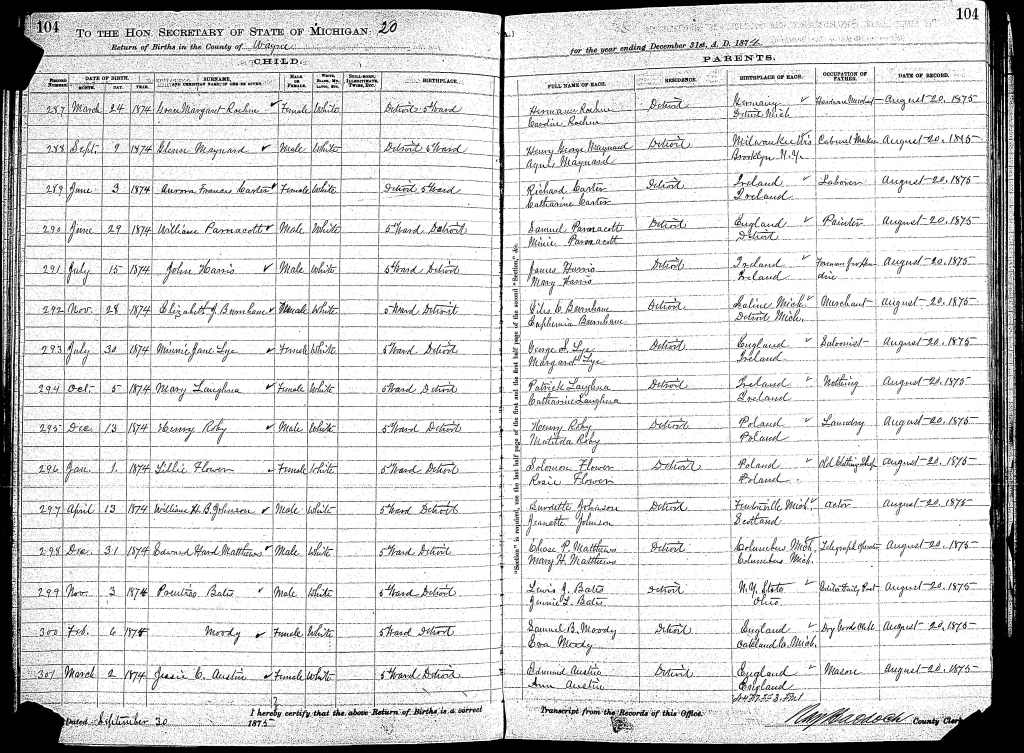 104
TO THE HON. SECRETARY OF STATE OF MICHIGAN: 20
Return of Births in the County of Wayne
CHILD.
RECORD NUMBER. DATE OF BIRTH. MONTH. DAY. YEAR. SURNAME, AND CHRISTIAN NAME IF ONE BE GIVEN. MALE OR FEMALE. WHITE, BLACK, MU., ETC. STILL-BORN, ILLEGITIMATE, TWINS, ETC. BIRTHPLACE.
287 March 24 1874 Margaret Roehm Female White Detroit 5 Ward
288 Sept. 9 1874 Glenn Maynard Male White Detroit 5 Ward
289 June 3 1874 Aurora Frances Carter Female White Detroit 5 Ward
290 June 29 1874 William Parnacott Male White 5 Ward Detroit
291 July 15 1874 John Harris Male White 5 Ward Detroit
292 Nov. 28 1874 Elizabeth J Burnham White 5 Ward Detroit
293 July 30 1874 Minnie Jane Lye Female White 5 Ward Detroit
294 Oct. 5 1874 Mary Laughna Female White 5 Ward Detroit
295 Dec. 13 1874 Henry Roby Male White 5 Ward Detroit
296 Jan. 1 1874 Lillie Flower Female White 5 Ward Detroit
297 April 13 1874 William H. B. Johnson Male White 5 Ward Detroit
298 Dec. 31 1874 Edward Hard Matthews Male White 5 Ward Detroit
299 Nov. 3 1874 Bates Male White 5 Ward Detroit
300 Feb. 6 1874 Moody Female White 5 Ward Detroit
301 March 2 1874 Jessie C. Austin Female White 5 Ward Detroit
Dated September 30 1875 I hereby certify that the above Return of Births is a correct
"Section" is required, use the last half page of the first and the first half page of the second "Section," &c.
104
for the year ending December 31st, A. D. 1874.
PARENTS.
FULL NAME OF EACH. RESIDENCE. BIRTHPLACE OF EACH. OCCUPATION OF FATHER. DATE OF RECORD.
Hermann Roehm Detroit Germany Hardware Merchant August 20, 1875
Caroline Roehm Detroit Mich
Henry George Maynard Detroit Milwaukee Wis Cabinet Maker August 20, 1875
Agnes Maynard Brooklyn N.Y.
Richard Carter Detroit Ireland Laborer August 20, 1875
Catharine Carter Ireland
Samuel Parnacott Detroit England Painter August 20, 1875
Minie Parnacott Detroit
James Harris Detroit Ireland Foreman August 20, 1875
Mary Harris Ireland
Giles C Burnham Detroit Saline Mich Merchant August 20, 1875
Euphemia Burnham Detroit Mich.
George S. Lye Detroit England Saloonist August 20, 1875
Margaret Lye Ireland
Patrick Laughna Detroit Ireland Nothing August 20, 1875
Catharine Laughna Ireland
Henry Roby Detroit Poland Laundry August 20, 1875
Matilda Roby Poland
Solomon Flower Detroit Poland Old Clothing Shop August 20, 1875
Rosie Flower Poland
Burdette Johnson Detroit Fentonville Mich. Actor August 20, 1875
Jeanette Johnson Scotland
Chase P. Matthews Detroit Columbus Mich. Telegraph Operator August 20, 1875
Mary H. Matthews Columbus Mich.
Lewis J. Bates Detroit N.Y. State Editor Daily Post August 20, 1875
Jennie L. Bates Ohio
Samuel B. Moody Detroit England Dry Goods Clerk August 20, 1875
Eva Moody Oakland Co. Mich.
Edmund Austin Detroit England Mason August 20, 1875
Ann Austin England
Transcript from the Records of this Office.
County Clerk